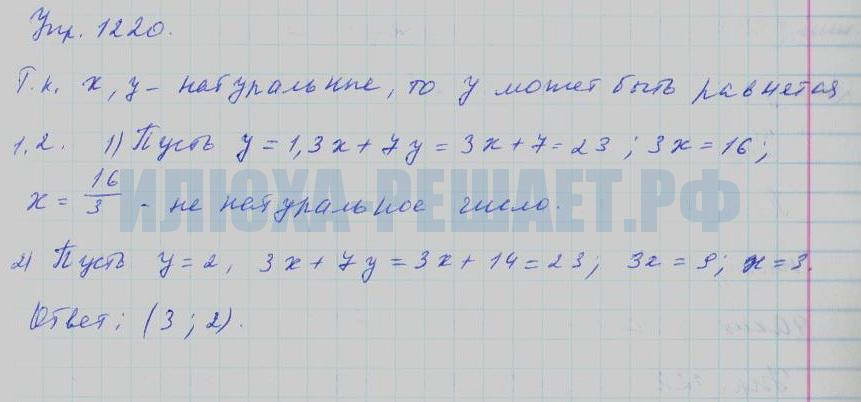 Упр. 1220.
Т.к. x, y - натуральные, то y может быть равняется
1,2. 1) Пусть y = 1, 3x + 7y = 3x + 7 = 23; 3x = 16;
x = 16/3 - не натуральное число.
ИЛЮХА-РЕШАЕТ.РФ
2) Пусть y = 2, 3x + 7y = 3x + 14 = 23; 3x = 9; x = 3.
Ответ: (3; 2).